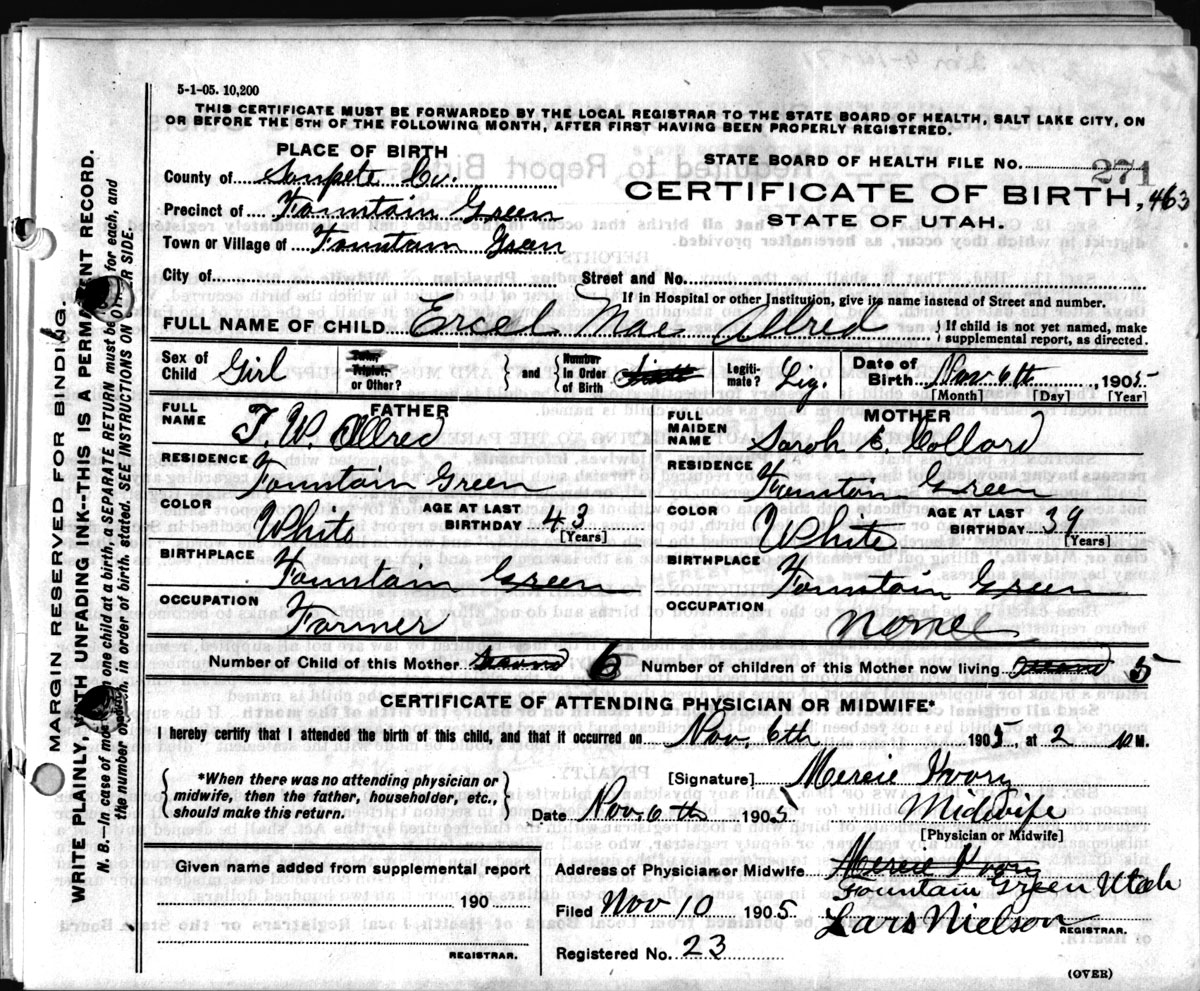 5-1-05. 10,200
THIS CERTIFICATE MUST BE FORWARDED BY THE LOCAL REGISTRAR TO THE STATE BOARD OF HEALTH, SALT LAKE CITY, ON
OR BEFORE THE 5TH OF THE FOLLOWING MONTH, AFTER FIRST HAVING BEEN PROPERLY REGISTERED.
PLACE OF BIRTH
STATE BOARD OF HEALTH FILE NO. 271
County of Sanpete Co.
CERTIFICATE OF BIRTH, 463
Precinct of Fountain Green
STATE OF UTAH.
Town or Village of Fountain Green
City of Street and No.
If in Hospital or other Institution, give its name instead of Street and number.
FULL NAME OF CHILD Mae Allred
If child is not yet named, make
supplemental report, as directed.
Sex of Child Girl
Twin, Triplet, or Other?
and
Number in Order of Birth
Legitimate? Leg.
Date of Birth Nov 6th, 1905
[Month] [Day] [Year]
FATHER
FULL NAME T W Allred
RESIDENCE Fountain Green
COLOR White AGE AT LAST BIRTHDAY 43 [Years]
BIRTHPLACE Fountain Green
OCCUPATION Farmer
MOTHER
FULL MAIDEN NAME Sarah E. Collard
RESIDENCE Fountain Green
COLOR White AGE AT LAST BIRTHDAY 39 [Years]
BIRTHPLACE Fountain Green
OCCUPATION None
Number of Child of this Mother 6 Number of children of this Mother now living 5
CERTIFICATE OF ATTENDING PHYSICIAN OR MIDWIFE*
I hereby certify that I attended the birth of this child, and that it occurred on Nov. 6th 1905, at 2 M.
*When there was no attending physician or
midwife, then the father, householder, etc.,
should make this return.
[Signature] Mersie Ivory
Date Nov. 6th 1905 Midwife
[Physician or Midwife]
Given name added from supplemental report
190
REGISTRAR.
Address of Physician or Midwife Mersie Ivory
Fountain Green Utah
Filed Nov 10 1905 Lars Nielson
REGISTRAR.
Registered No. 23
(OVER)
MARGIN RESERVED FOR BINDING.
WRITE PLAINLY, WITH UNFADING INK--THIS IS A PERMANENT RECORD.
N. B.—In case of more than one child at a birth, a SEPARATE RETURN must be made for each, and
the number of each, in order of birth, stated. SEE INSTRUCTIONS ON OTHER SIDE.